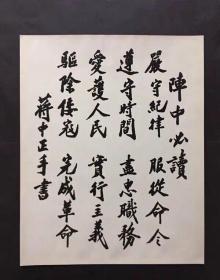 陣中必讀
嚴守紀律 服從命令
遵守時間 盡忠職務
愛護人民 實行主義
驅除倭寇 完成革命
蔣中正手書